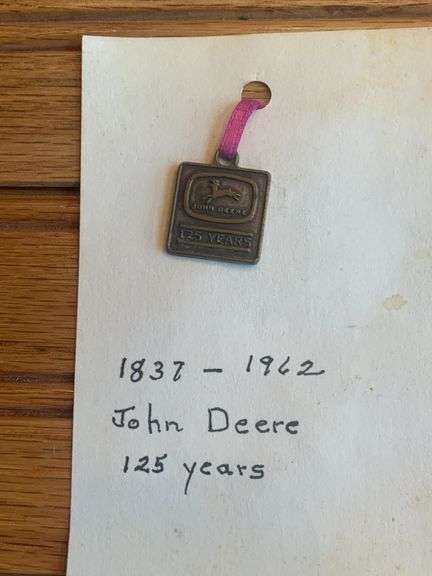 JOHN DEERE
125 YEARS
1837 - 1962
John Deere
125 years